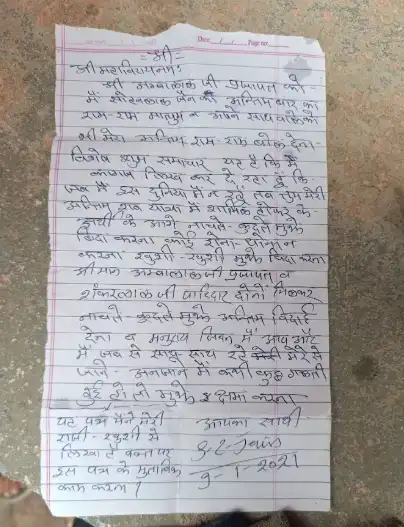 Date: / / Page no:
= श्री =
श्री महाविरायनम:
श्री अम्बालाल जी प्रजापत को -
मैं सोहनलाल जैन की अन्तिम बार का
राम-राम मालुम व अपने साथ वालो को
भी मेरा अन्तिम राम-राम बोल देना -
विशेष शुभ समाचार यह है कि मैं
लिख कर दे रहा हुं कि
जब मैं इस दुनिया में न रहुं तब तुम मेरी
अन्तिम शव यात्रा में शामिल होकर के
अर्थी के आगे नाचते-कुदते मुझे
बिदा करना कोई रोना-धोना न
करना खुशी-खुशी मुझे बिदा करना
श्रीमान अम्बालालजी प्रजापत व
शंकरलाल जी पाटिदार दोनों मिलकर
नाचते-कुदते मुझे अन्तिम विदाई
देना व मनुष्य जिवन में आप और
मैं जब से साथ-साथ रहे मेरे से
जाने-अनजाने में कभी कुछ गलती
हुई हो तो मुझे क्षमा करना
यह पत्र मैंने मेरी
राजी-खुशी से
लिखा है वक्त पर
इस पत्र के मुताबिक
काम करना /
आपका साथी
S. L. Jain
9-1-2021